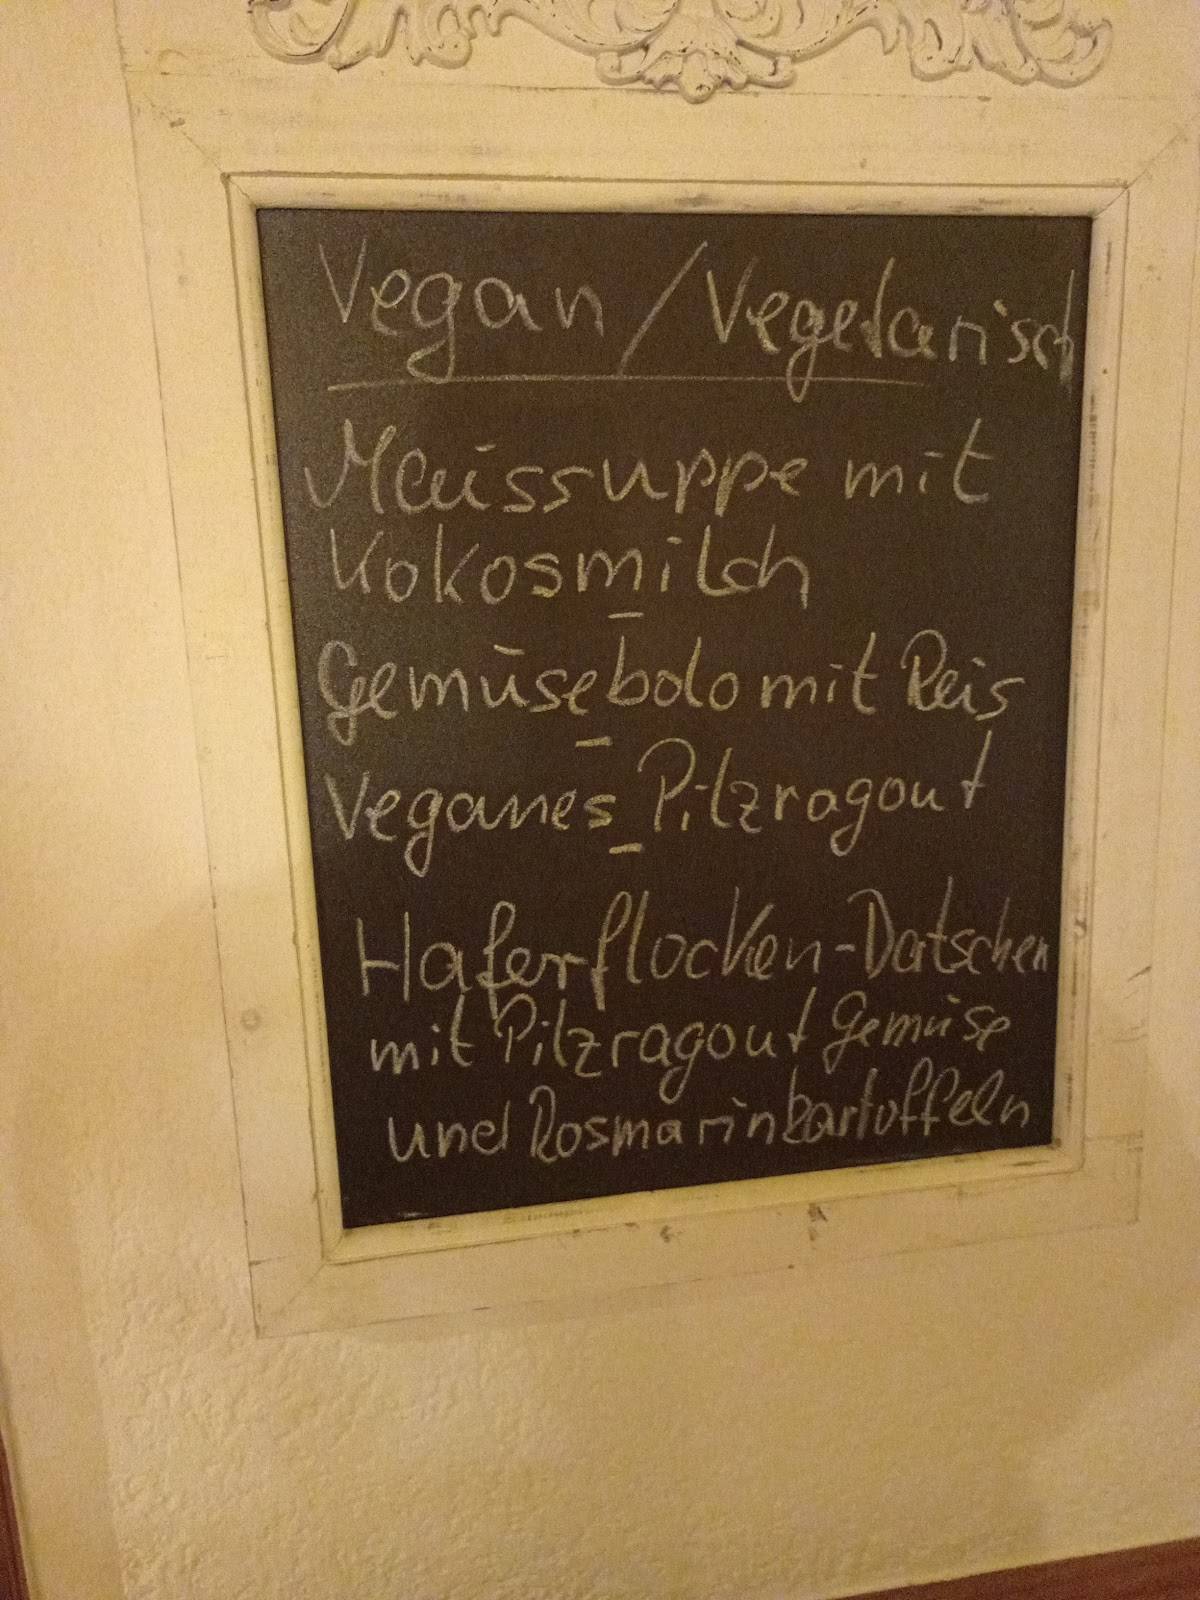 Vegan / Vegetarisch
Maissuppe mit
Kokosmilch
–
Gemüsebolo mit Reis
–
Veganes Pilzragout
–
Haferflocken-Datschen
mit Pilzragout Gemüse
und Rosmarinkartoffeln